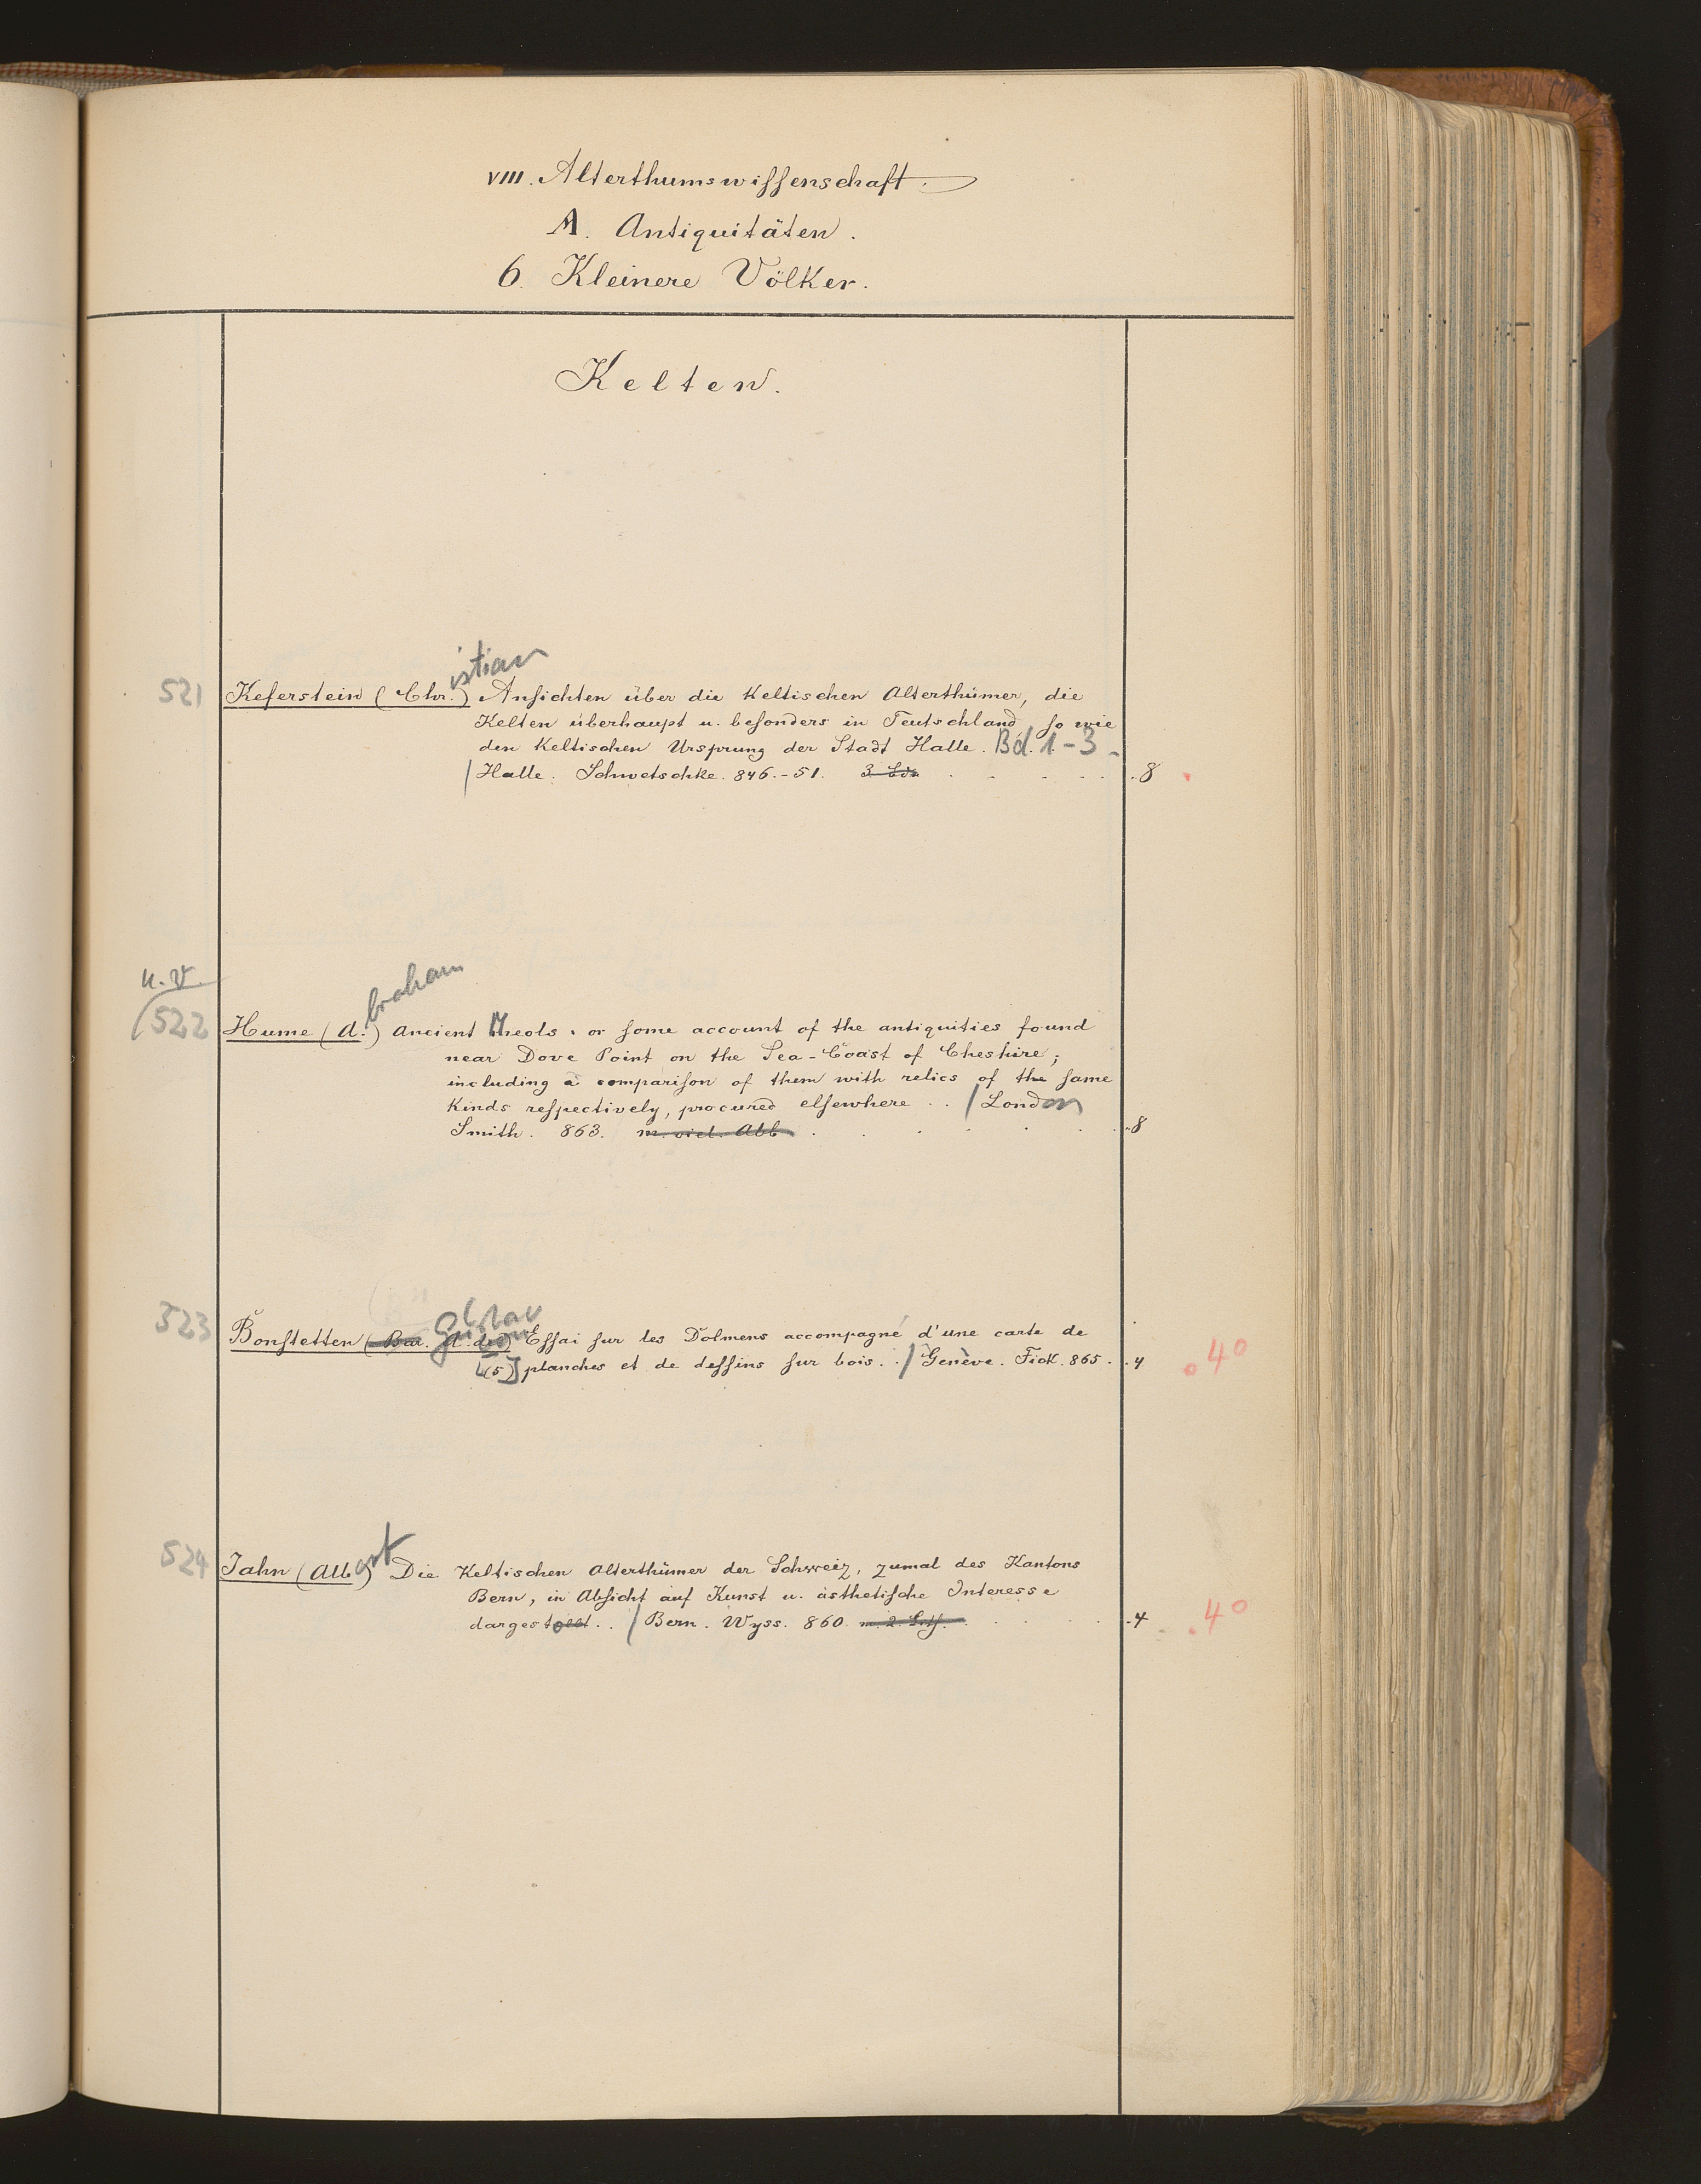 VIII. Alterthumswissenschaft.
A. Antiquitäten.
6. Kleinere Völker.
Kelten.
istian
521 Keferstein (Chr.) Ansichten über die Keltischen Alterthümer, die
Kelten überhaupt u. besonders in Teutschland, so wie
den Keltischen Ursprung der Stadt Halle. Bd. 1-3
Halle. Schwetschke. 846.-51. 3 Bde . 8
u. V.
braham
522 Hume (A.) Ancient Meols: or some account of the antiquities found
near Dove Point on the Sea-Coast of Cheshire;
including a comparison of them with relics of the same
Kinds respectively, procured elsewhere .. / London
Smith. 863. m. viel. Abb . 8
523 Bonstetten (Bar. A. de) Essai sur les Dolmens accompagné d'une carte de
[(5)] planches et de dessins sur bois. . / Genève. Fick. 865. . 4 40
524 Jahn (Albert) Die Keltischen Alterthümer der Schweiz, zumal des Kantons
Bern, in Absicht auf Kunst u. ästhetische Interesse
dargestellt. . / Bern. Wyss. 860. m. 2. Lith. . 4 40